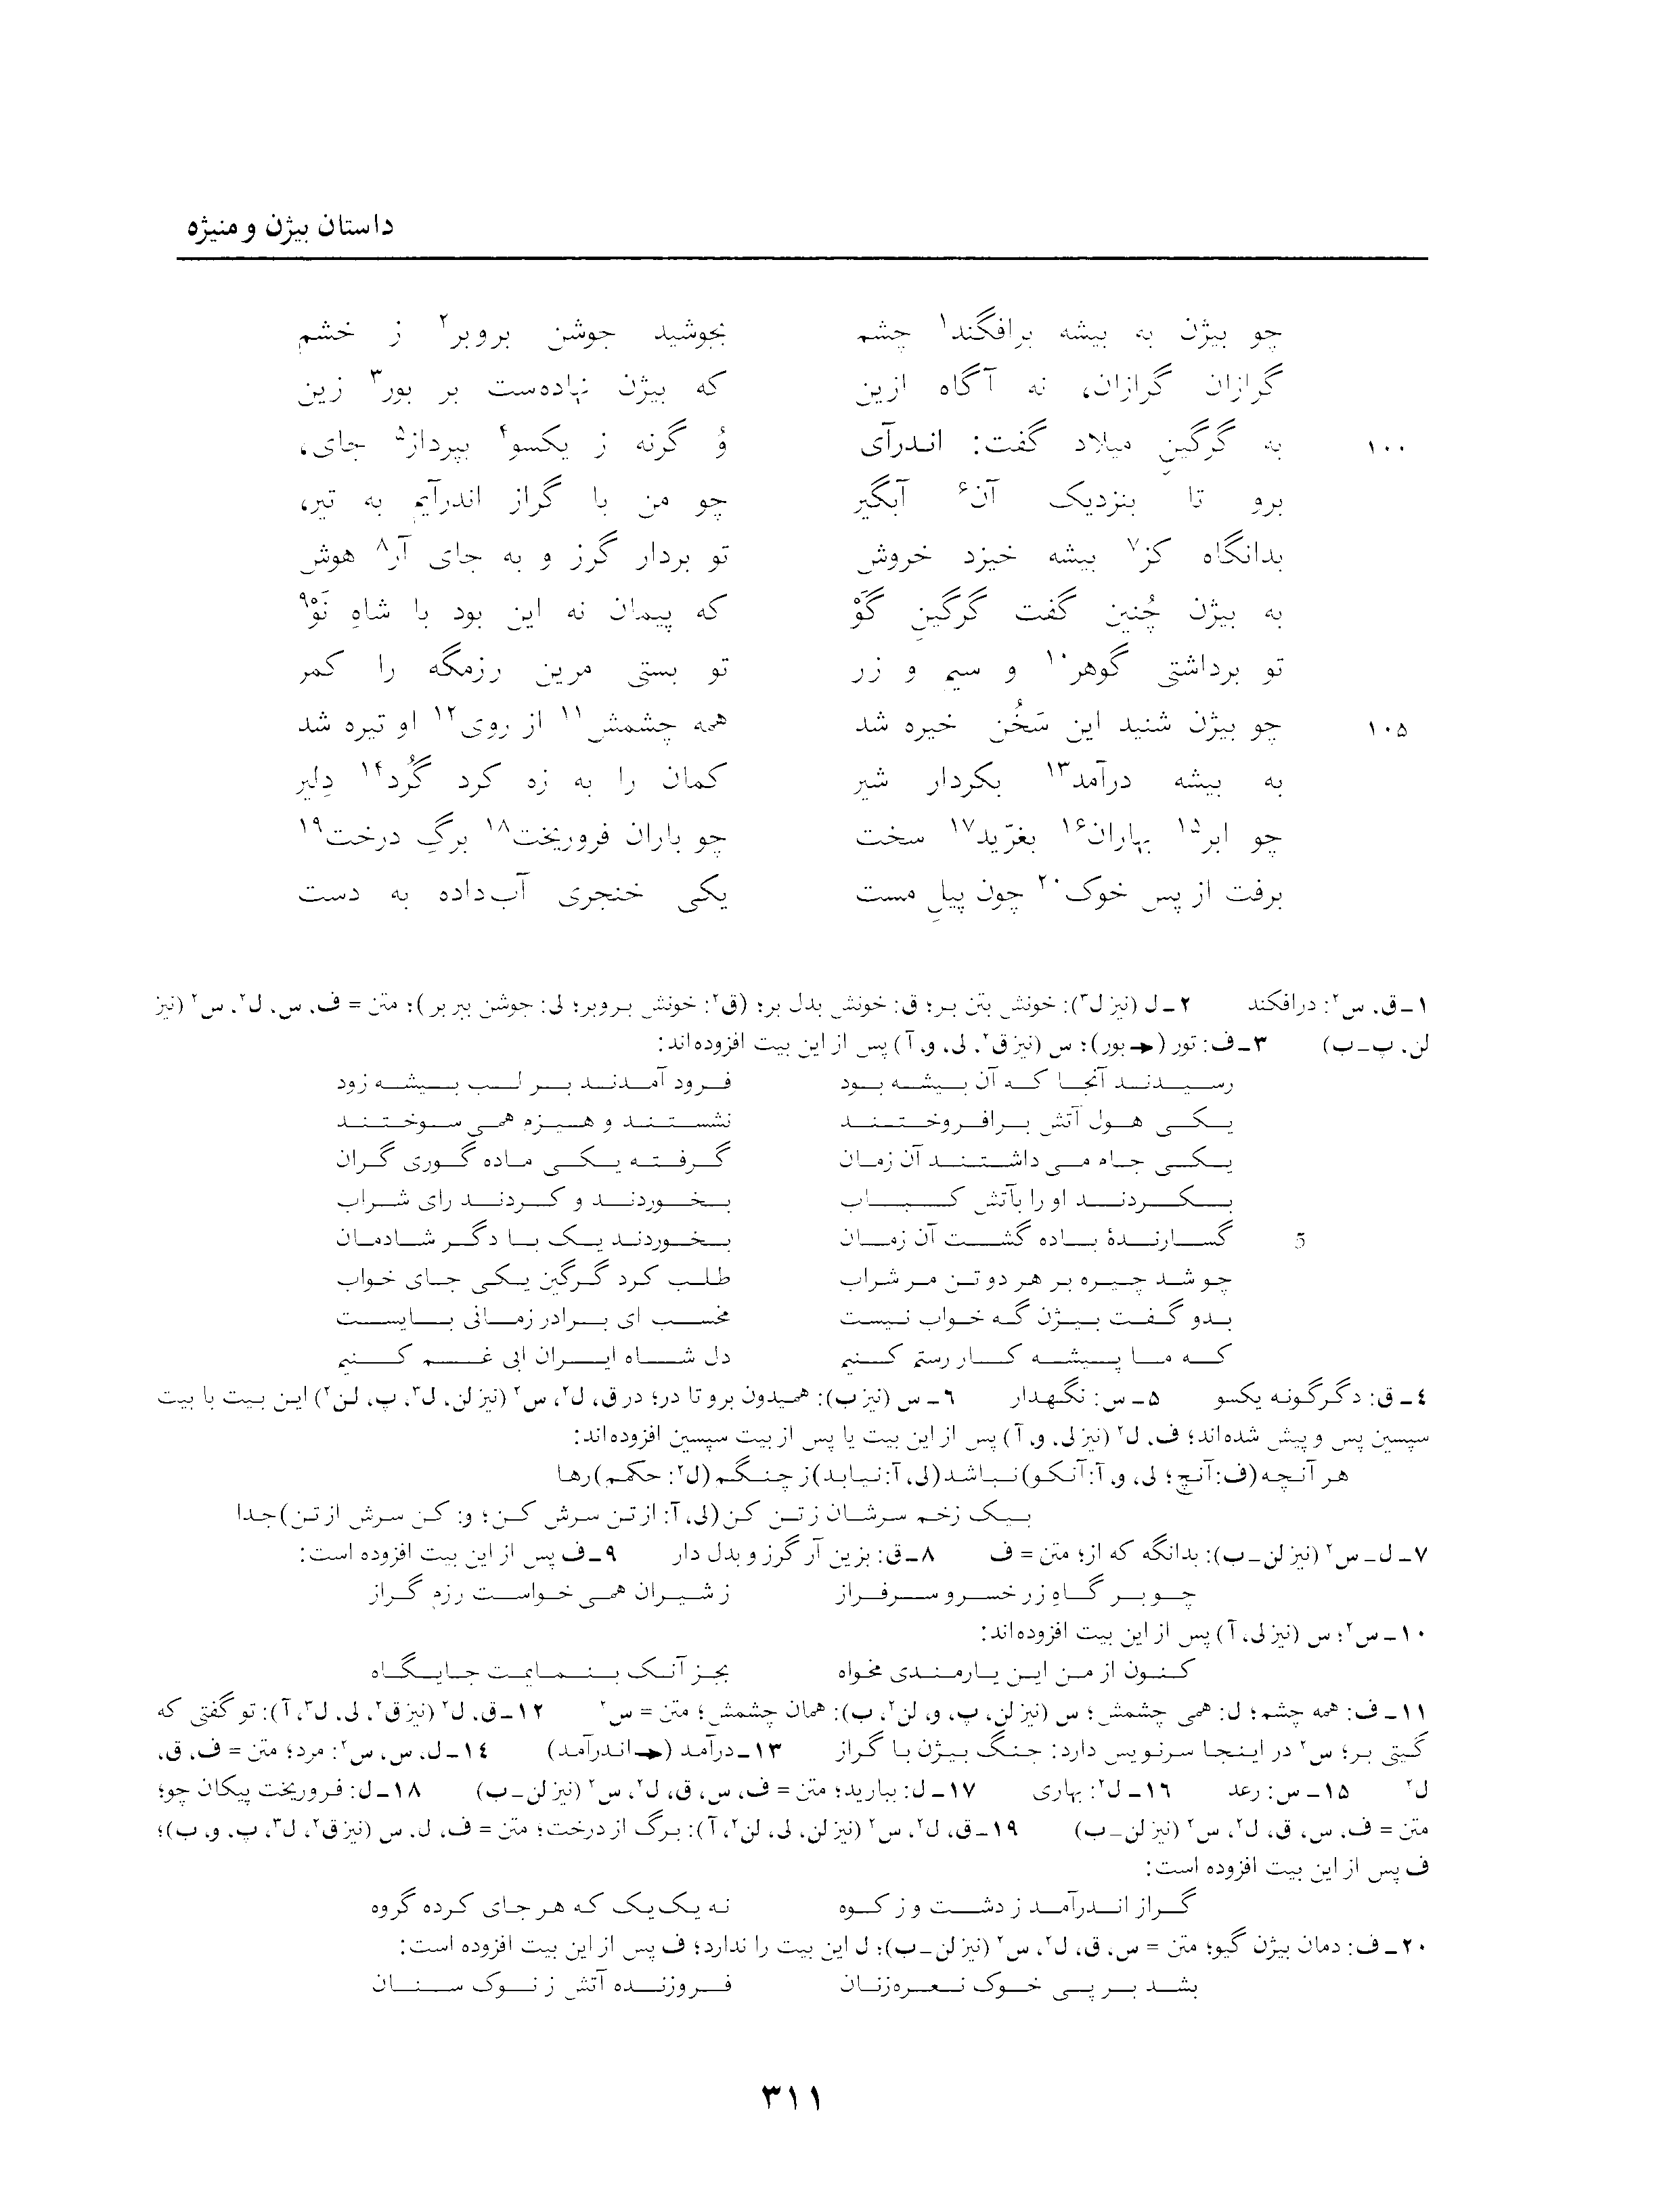 داستان بیژن و منیژه
چو بیژن به بیشه برافگند۱ چشم بجوشید جوشن بروبر۲ ز خشم
گرازان گرازان، نه آگاه ازین که بیژن نهاده‌ست بر بور۳ زین
۱۰۰ به گرگینِ میلاد گفت: اندرآی وُ گرنه ز یکسو۴ بپرداز۵ جای،
برو تا بنزدیک آن۶ آبگیر چو من با گراز اندرآیم به تیر،
بدانگاه کز۷ بیشه خیزد خروش تو بردار گرز و به جای آر۸ هوش
به بیژن چُنین گفت گرگینِ گَوْ که پیمان نه این بود با شاهِ نَوْ۹
تو برداشتی گوهر۱۰ و سیم و زر تو بستی مرین رزمگه را کمر
۱۰۵ چو بیژن شنید این سَخُن خیره شد همه چشمش۱۱ از روی۱۲ او تیره شد
به بیشه درآمد۱۳ بکردار شیر کمان را به زه کرد گُرد۱۴ دِلیر
چو ابر۱۵ بهاران۱۶ بغرّید۱۷ سخت چو باران فروریخت۱۸ برگِ درخت۱۹
برفت از پس خوک۲۰ چون پیلِ مست یکی خنجری آب‌داده به دست
۱ـ ق، س۲: درافکند ۲ـ ل (نیز ل۳): خونش بتن بر؛ ق: خونش بدل بر؛ (ق۲: خونش بروبر؛ لی: جوشن ببر بر)؛ متن = ف، س، ل۲، س۲ (نیز
لن، پ ـ ب) ۳ـ ف: تور (← بور)؛ س (نیز ق۲، لی، و، آ) پس از این بیت افزوده‌اند:
رسیدند آنجا که آن بیشه بود فرود آمدند بر لب بیشه زود
یکی هول آتش برافروختند نشستند و هیزم همی سوختند
یکی جام می داشتند آن زمان گرفته یکی ماده گوری گران
بکردند او را بآتش کباب بخوردند و کردند رای شراب
5 گسارندهٔ باده گشت آن زمان بخوردند یک با دگر شادمان
چو شد چیره بر هر دو تن مر شراب طلب کرد گرگین یکی جای خواب
بدو گفت بیژن گه خواب نیست مخسب ای برادر زمانی بایست
که ما پیشه کار رستم کنیم دل شاه ایران ابی غم کنیم
۴ـ ق: دگرگونه یکسو ۵ـ س: نگهدار ۶ـ س (نیز ب): همیدون برو تا در؛ در ق، ل۲، س۲ (نیز لن، ل۳، پ، لن۲) این بیت با بیت
سپسین پس و پیش شده‌اند؛ ف، ل۲ (نیز لی، و، آ) پس از این بیت یا پس از بیت سپسین افزوده‌اند:
هر آنچه (ف: آنچ؛ لی، و، آ: آنکو) نباشد (لی، آ: نیابد) ز چنگم (ل۲: حکمم) رها
بیک زخم سرشان ز تن کن (لی، آ: از تن سرش کن؛ و: کن سرش از تن) جدا
۷ـ ل ـ س۲ (نیز لن ـ ب): بدانگه که از؛ متن = ف ۸ـ ق: بزین آر گرز و بدل دار ۹ـ ف پس از این بیت افزوده است:
چو بر گاهِ زر خسرو سرفراز ز شیران همی خواست رزم گراز
۱۰ـ س۲؛ س (نیز لی، آ) پس از این بیت افزوده‌اند:
کنون از من این یارمندی مخواه بجز آنک بنمایمت جایگاه
۱۱ـ ف: همه چشم؛ ل: همی چشمش؛ س (نیز لن، پ، و، لن۲، ب): همان چشمش؛ متن = س۲ ۱۲ـ ق، ل۲ (نیز ق۲، لی، ل۳، آ): تو گفتی که
گیتی بر؛ س۲ در اینجا سرنویس دارد: جنگ بیژن با گراز ۱۳ـ درآمد (← اندرآمد) ۱۴ـ ل، س، س۲: مرد؛ متن = ف، ق،
ل۲ ۱۵ـ س: رعد ۱۶ـ ل۲: بهاری ۱۷ـ ل: ببارید؛ متن = ف، س، ق، ل۲، س۲ (نیز لن ـ ب) ۱۸ـ ل: فروریخت پیکان چو؛
متن = ف، س، ق، ل۲، س۲ (نیز لن ـ ب) ۱۹ـ ق، ل۲، س۲ (نیز لن، لی، لن۲، آ): برگ از درخت؛ متن = ف، ل، س (نیز ق۲، ل۳، پ، و، ب)؛
ف پس از این بیت افزوده است:
گراز اندرآمد ز دشت و ز کوه نه یک‌یک که هر جای کرده گروه
۲۰ـ ف: دمان بیژن گیو؛ متن = س، ق، ل۲، س۲ (نیز لن ـ ب)؛ ل این بیت را ندارد؛ ف پس از این بیت افزوده است:
بشد بر پی خوک نعره‌زنان فروزنده آتش ز نوک سنان
۳۱۱